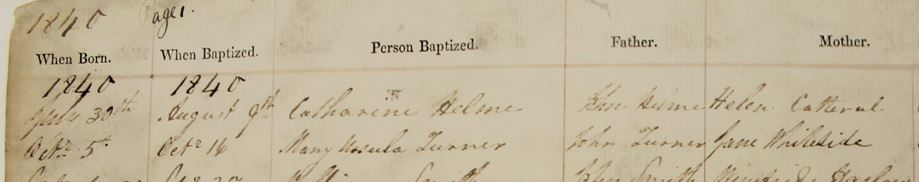 1840 Page 1.
When Born. When Baptized. Person Baptized. Father. Mother.
1840 1840
July 30th August 9th Catharine Helme John Helme Helen Catteral
Octr. 5th Octr 16 Mary Ursula Turner John Turner Jane Whiteside
John Smith